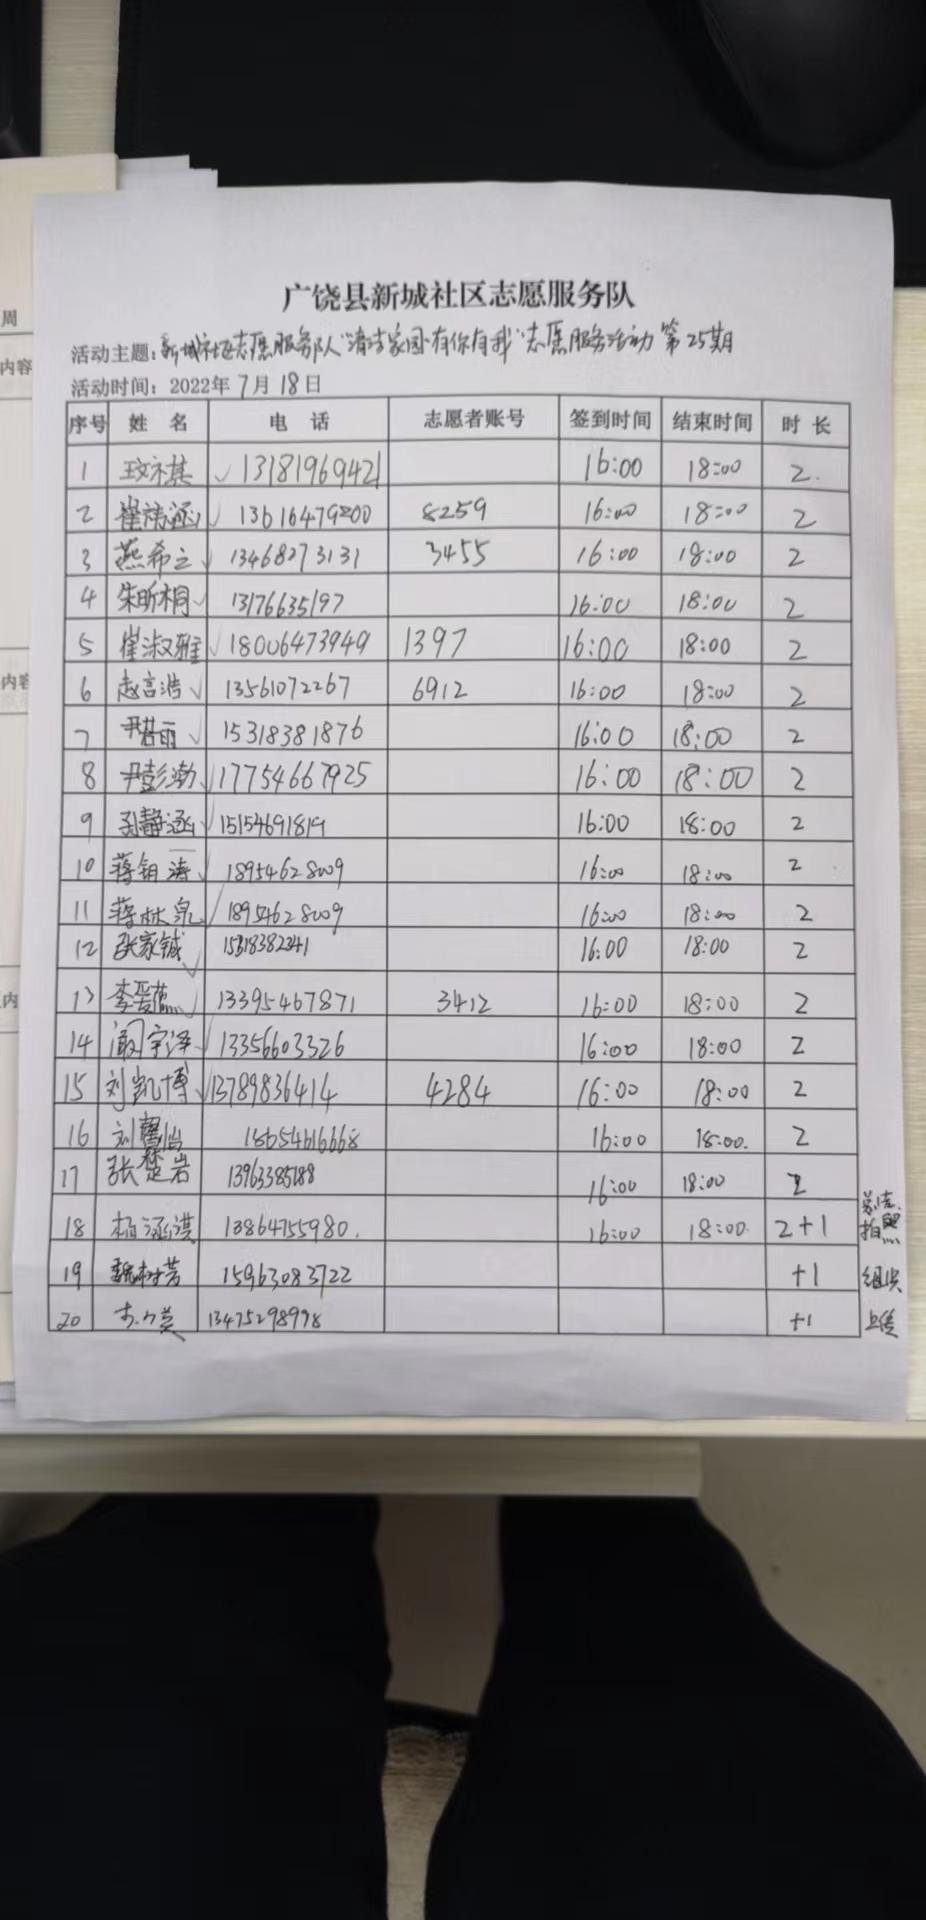 周
内容
内容
内
广饶县新城社区志愿服务队
活动主题：新城社区志愿服务队"清洁家园·有你有我"志愿服务活动 第25期
活动时间：2022年7月18日
序号 姓 名 电 话 志愿者账号 签到时间 结束时间 时 长
1 ✓ 13181969421 16:00 18:00 2
2 崔涵 13616479200 8259 16:00 18:00 2
3 燕希之 ✓ 13468273131 3455 16:00 18:00 2
4 朱昕桐 ✓ 13176635197 16:00 18:00 2
5 崔淑雅 ✓ 18006473949 1397 16:00 18:00 2
6 赵言浩 ✓ 13561072267 6912 16:00 18:00 2
7 尹丽 ✓ 15318381876 16:00 18:00 2
8 尹彭渤 ✓ 17754667925 16:00 18:00 2
9 孙静涵 ✓ 15154691819 16:00 18:00 2
10 蒋涛 ✓ 18954628009 16:00 18:00 2
11 蒋林泉 ✓ 18954628009 16:00 18:00 2
12 张家铖 ✓ 15318382341 16:00 18:00 2
13 李 ✓ 13395467871 3412 16:00 18:00 2
14 阚宇泽 ✓ 13356603326 16:00 18:00 2
15 刘凯博 ✓ 13789836414 4284 16:00 18:00 2
16 刘 18654616668 16:00 18:00. 2
17 张楚岩 13963385188 16:00 18:00 2
18 杨涵淇 13864755980. 16:00 18:00. 2+1 拍照
19 魏树芳 15963083722 +1 组织
20 13475298998 +1 上传